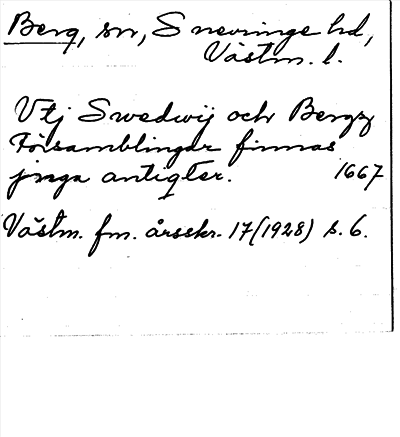 Berg, sn, Snevringe hd,
Västm. l.
Vtj Swedwij och Bergz
Församblingar finnas
jnga antiqter. 1667
Västm. fm. årsskr. 17 (1928) s. 6.